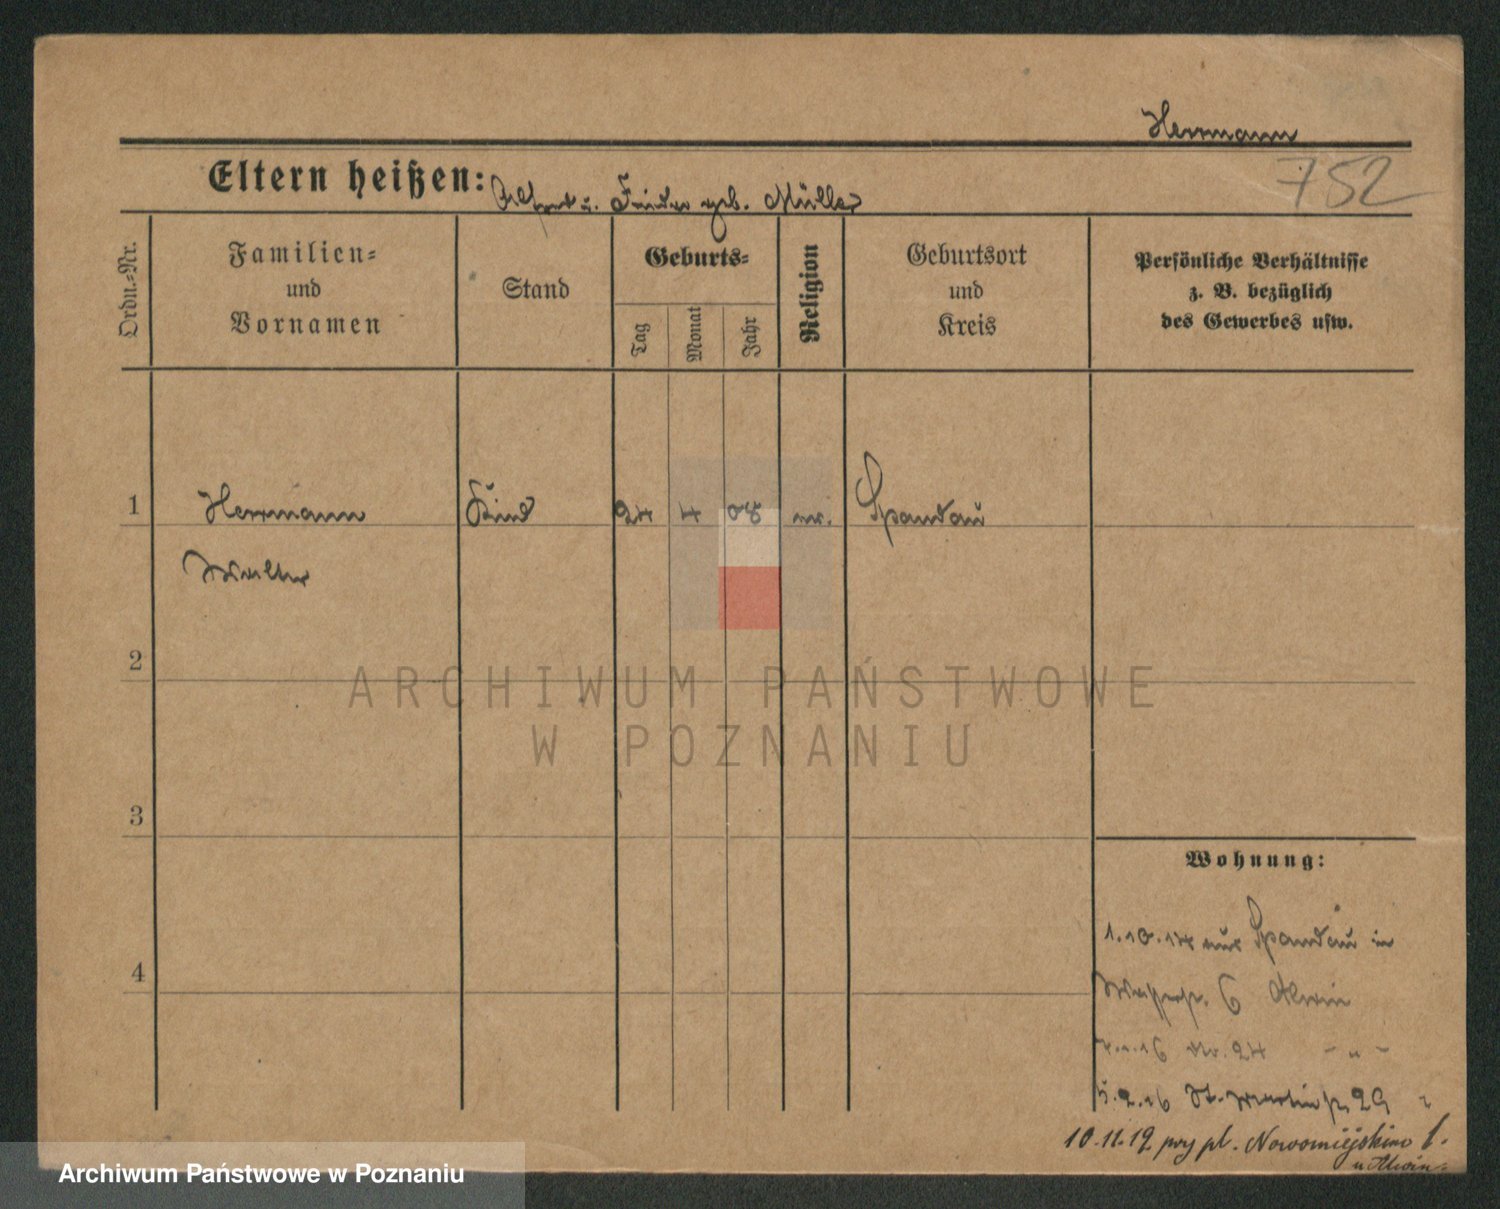 Herrmann
752
Eltern heißen: u. geb. Müller
Ordn.-Nr.
Familien-
und
Vornamen
Stand
Geburts-
Tag
Monat
Jahr
Religion
Geburtsort
und
Kreis
Persönliche Verhältnisse
z. B. bezüglich
des Gewerbes usw.
1 Herrmann Kind 24 4 08 ev. Spandau
Walter
2
ARCHIWUM PAŃSTWOWE
W POZNANIU
3
4
Wohnung:
1.10.14 aus Spandau in
6 Alwin
24 - " -
5.2.16 St. Martinstr. 29 "
10.11.19 przy pl. Nowomiejskim 1.
u Alwin.
Archiwum Państwowe w Poznaniu